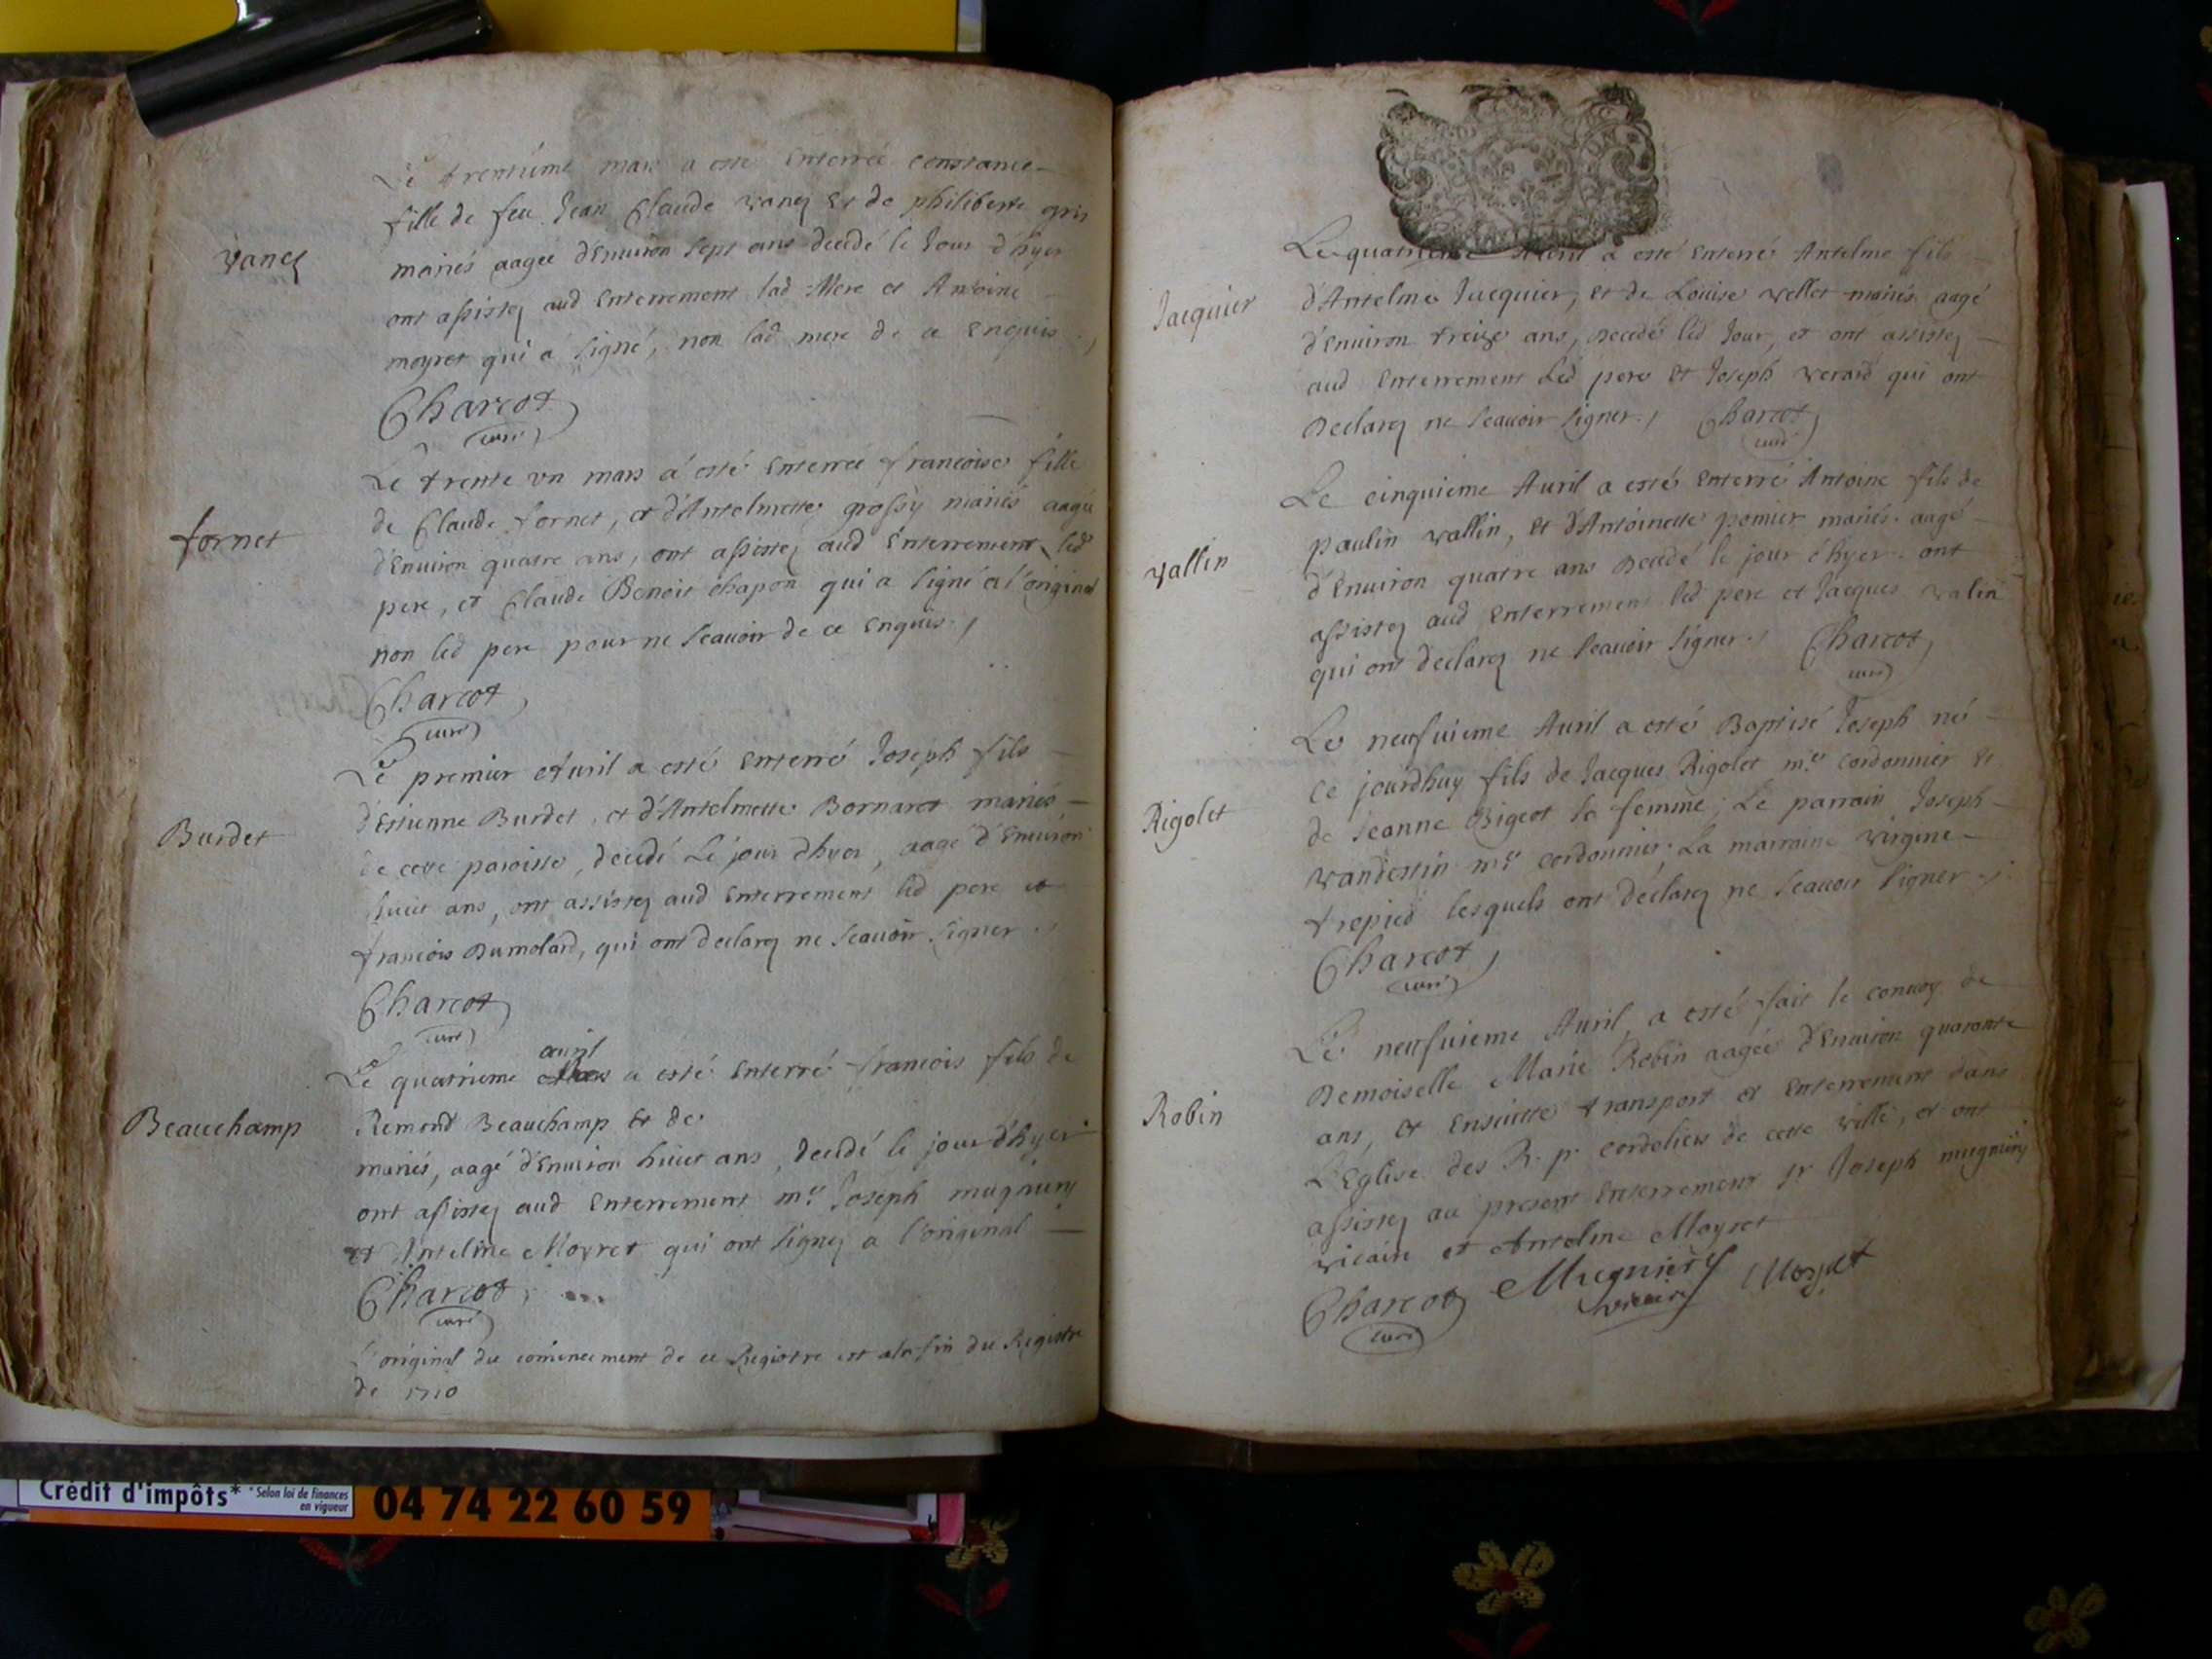 Le trentiéme mars a esté Enterrée constance
fille de feu Jean Claude vanez Et de philiberte gris
vanez
mariés aagée d'Enuiron sept ans decedé le Jour d'hyer
ont assistez aud Enterrement lad Mere et Antoine
moyret qui a signé, non lad mere de ce Enquis
Charcot
curé
Le trente un mars a esté Enterrée francoise fille
de Claude fornet, et d'Antelmette grossy mariés aagée
fornet
d'Enuiron quatre ans, ont assistez aud Enterrement led
pere, et Claude Benoit chapon qui a signé a l'original
non led pere pour ne scauoir de ce Enquis
Charcot
curé
Le premier Auril a esté Enterré Joseph fils
d'Estienne Burdet, et d'Antelmette Bornaret mariés
Burdet
de cette paroisse, decedé Le jour d'hyer, aagé d'Enuiron
huict ans, ont assistez aud Enterrement led pere et
francois Dumolard, qui ont declarez ne scauoir signer
Charcot
curé
auril
Le quatrieme a esté Enterré francois fils de
Beauchamp
Remond Beauchamp Et de
mariés, aagé d'Enuiron huict ans, decedé le jour d'hyer
ont assistez aud Enterrement mre Joseph mugniery
et Antelme Moyret qui ont signez a l'original
Charcot
curé
L'original du comencement de ce Registre est a la fin du Registre
de 1710
Le quatrieme Auril a esté Enterré Antelme fils
Jacquier
d'Antelme Jacquier, et de Louise vellet mariés aagé
d'Enuiron treize ans, decedé led Jour, et ont assistez
aud Enterrement Led pere Et Joseph verard qui ont
Declarez ne scauoir signer. Charcot
curé
Le cinquieme Auril a esté Enterré Antoine fils de
paulin vallin, Et d'Antoinette pomier mariés aagé
vallin
d'Enuiron quatre ans Decedé le jour d'hyer ont
assistez aud Enterrement led pere et Jacques valin
qui ont declarez ne scauoir signer. Charcot
curé
Le neufuieme Auril a esté Baptisé Joseph né
ce jourdhuy fils de Jacques Rigolet mre cordonnier Et
Rigolet
de Jeanne Bigeot sa femme; Le parrain Joseph
vandestin mre cordonnier; La marraine virgine
tropied lesquels ont declarez ne scauoir signer
Charcot
curé
Le neufuieme Auril, a esté fait le conuoy de
Demoiselle Marie Robin aagée d'Enuiron quarante
Robin
ans, et Ensuitte transport et Enterrement dans
L'Eglise des R. p. cordeliers de cette ville, et ont
assistez au present Enterrement sr Joseph mugniery
vicaire et Antelme Moyret
Charcot Mugniery Moyret
curé vicaire
Crédit d'impôts* * Selon loi de finances
en vigueur
04 74 22 60 59